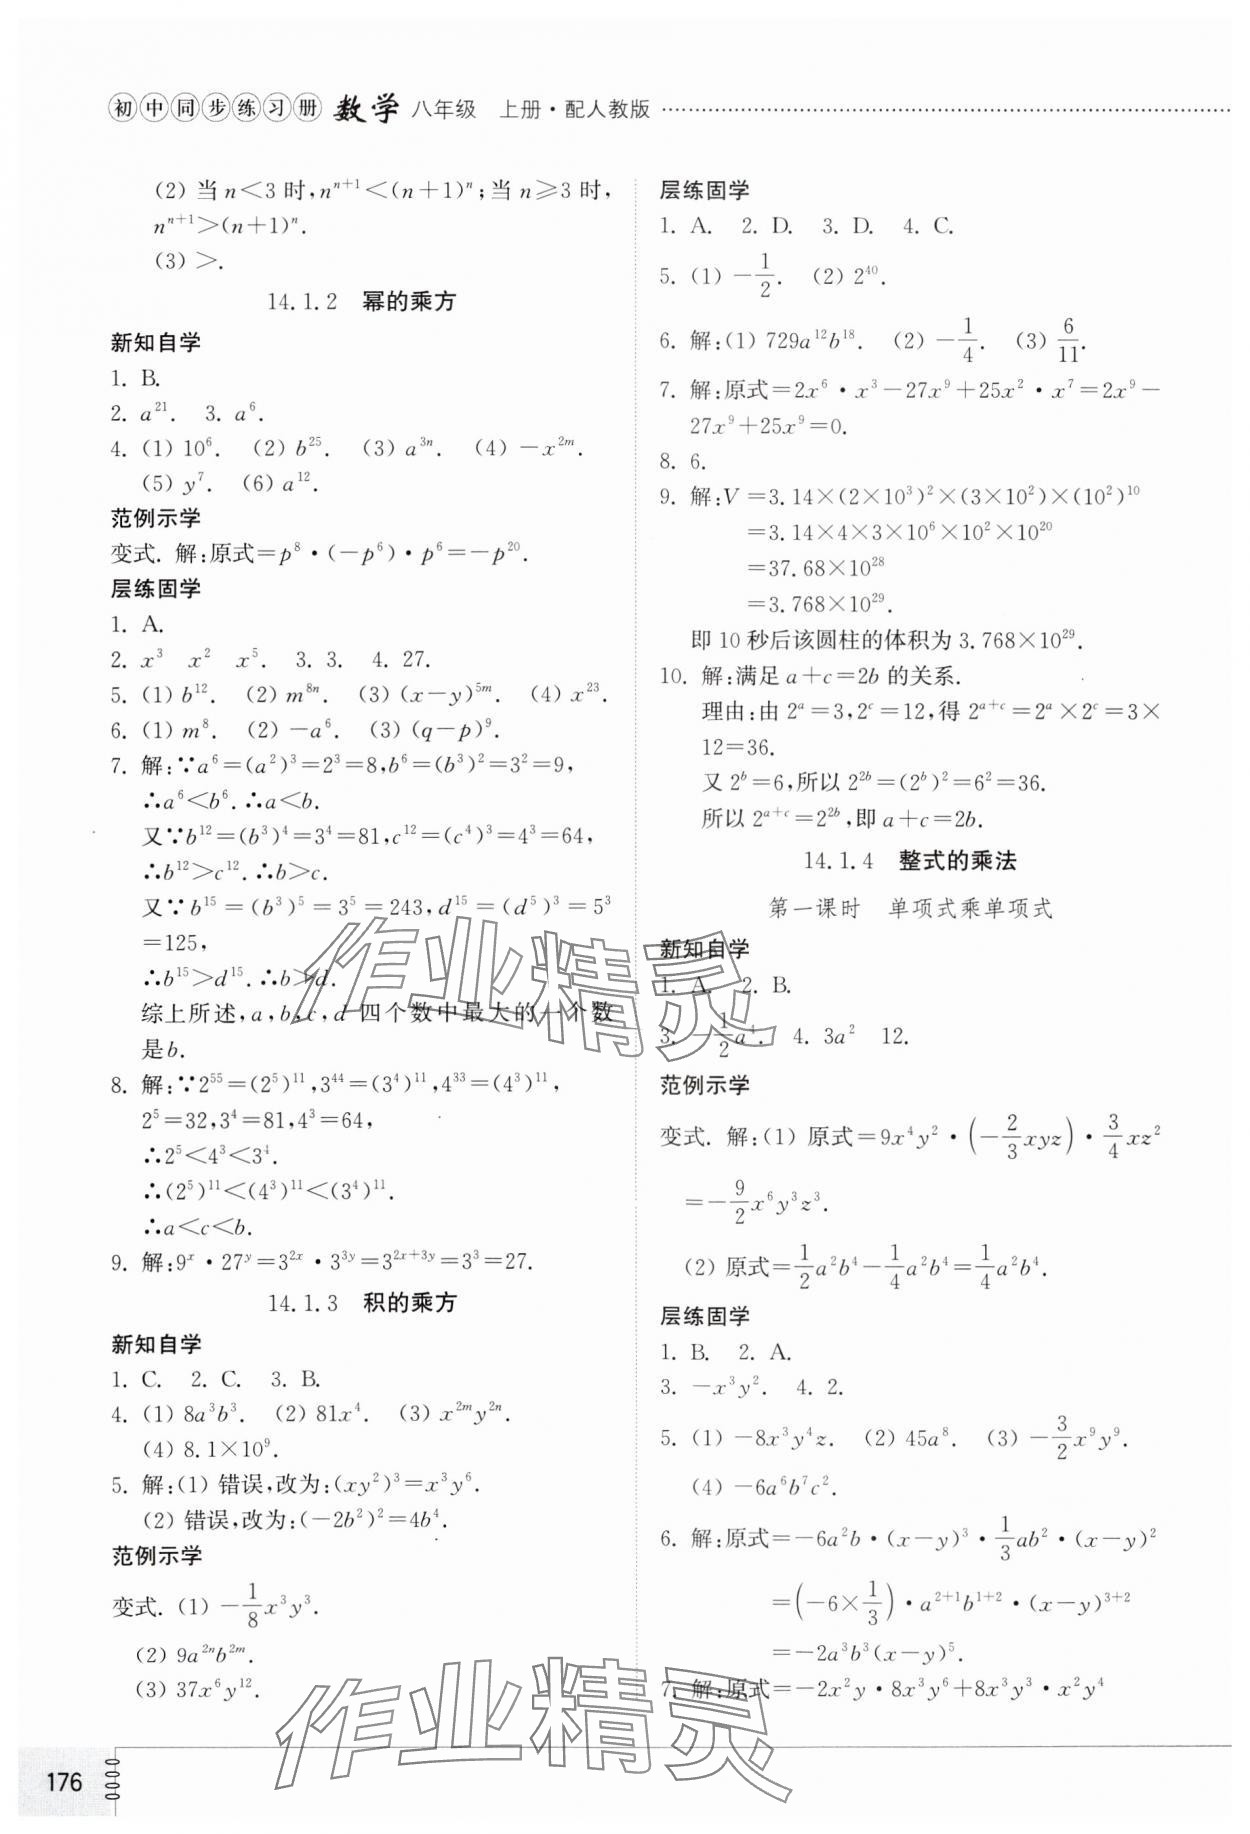 初中同步练习册 数学 八年级 上册·配人教版
(2) 当 n<3 时,n^{n+1}<(n+1)^n;当 n≥3 时,
n^{n+1}>(n+1)^n.
(3) >.
14.1.2 幂的乘方
新知自学
1. B.
2. a^{21}. 3. a^6.
4. (1) 10^6. (2) b^{25}. (3) a^{3n}. (4) −x^{2m}.
(5) y^7. (6) a^{12}.
范例示学
变式. 解:原式=p^8·(−p^6)·p^6=−p^{20}.
层练固学
1. A.
2. x^3 x^2 x^5. 3. 3. 4. 27.
5. (1) b^{12}. (2) m^{8n}. (3) (x−y)^{5m}. (4) x^{23}.
6. (1) m^8. (2) −a^6. (3) (q−p)^9.
7. 解:∵a^6=(a^2)^3=2^3=8,b^6=(b^3)^2=3^2=9,
∴a^6<b^6.∴a<b.
又∵b^{12}=(b^3)^4=3^4=81,c^{12}=(c^4)^3=4^3=64,
∴b^{12}>c^{12}.∴b>c.
又∵b^{15}=(b^3)^5=3^5=243,d^{15}=(d^5)^3=5^3
=125,
∴b^{15}>d^{15}.∴b>d.
综上所述,a,b,c,d 四个数中最大的一个数
是b.
8. 解:∵2^{55}=(2^5)^{11},3^{44}=(3^4)^{11},4^{33}=(4^3)^{11},
2^5=32,3^4=81,4^3=64,
∴2^5<4^3<3^4.
∴(2^5)^{11}<(4^3)^{11}<(3^4)^{11}.
∴a<c<b.
9. 解:9^x·27^y=3^{2x}·3^{3y}=3^{2x+3y}=3^3=27.
14.1.3 积的乘方
新知自学
1. C. 2. C. 3. B.
4. (1) 8a^3b^3. (2) 81x^4. (3) x^{2m}y^{2n}.
(4) 8.1×10^9.
5. 解:(1) 错误,改为:(xy^2)^3=x^3y^6.
(2) 错误,改为:(−2b^2)^2=4b^4.
范例示学
变式. (1) −\frac{1}{8}x^3y^3.
(2) 9a^{2n}b^{2m}.
(3) 37x^6y^{12}.
层练固学
1. A. 2. D. 3. D. 4. C.
5. (1) −\frac{1}{2}. (2) 2^{40}.
6. 解:(1) 729a^{12}b^{18}. (2) −\frac{1}{4}. (3) \frac{6}{11}.
7. 解:原式=2x^6·x^3−27x^9+25x^2·x^7=2x^9−
27x^9+25x^9=0.
8. 6.
9. 解:V=3.14×(2×10^3)^2×(3×10^2)×(10^2)^{10}
=3.14×4×3×10^6×10^2×10^{20}
=37.68×10^{28}
=3.768×10^{29}.
即10秒后该圆柱的体积为3.768×10^{29}.
10. 解:满足 a+c=2b 的关系.
理由:由 2^a=3,2^c=12,得 2^{a+c}=2^a×2^c=3×
12=36.
又 2^b=6,所以 2^{2b}=(2^b)^2=6^2=36.
所以 2^{a+c}=2^{2b},即 a+c=2b.
14.1.4 整式的乘法
第一课时 单项式乘单项式
新知自学
1. A. 2. B.
3. −\frac{1}{2}a^4. 4. 3a^2 12.
范例示学
变式. 解:(1) 原式=9x^4y^2·(−\frac{2}{3}xyz)·\frac{3}{4}xz^2
=−\frac{9}{2}x^6y^3z^3.
(2) 原式=\frac{1}{2}a^2b^4−\frac{1}{4}a^2b^4=\frac{1}{4}a^2b^4.
层练固学
1. B. 2. A.
3. −x^3y^2. 4. 2.
5. (1) −8x^3y^4z. (2) 45a^8. (3) −\frac{3}{2}x^9y^9.
(4) −6a^6b^7c^2.
6. 解:原式=−6a^2b·(x−y)^3·\frac{1}{3}ab^2·(x−y)^2
=(−6×\frac{1}{3})·a^{2+1}b^{1+2}·(x−y)^{3+2}
=−2a^3b^3(x−y)^5.
7. 解:原式=−2x^2y·8x^3y^6+8x^3y^3·x^2y^4
作业精灵
作业精灵
176